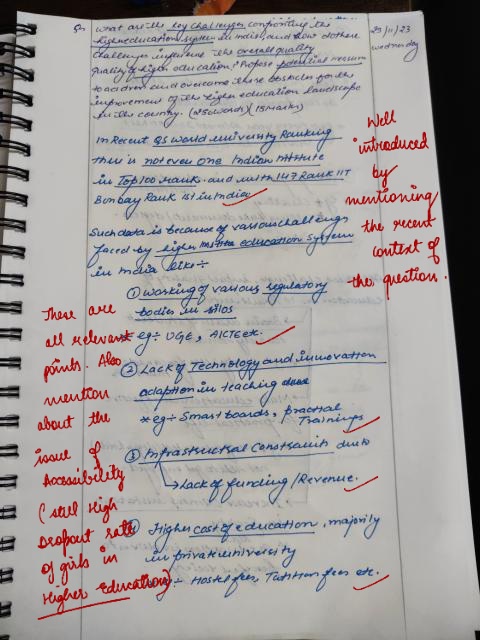 Qn what are the key challenges confronting the
higher education system in India, and how do these
challenges influence the overall quality
quality of higher education? Propose potential measures
to address and overcome these obstacles for the
improvement of the higher education landscape
in the country. (15 Marks)
23/11/23
wednesday
In Recent QS world university Ranking
there is not even one Indian Institute
in Top 100 rank. and with 147 Rank IIT
Bombay Rank 1st in India
Well
introduced
by
mentioning
the recent
context of
the question.
Such data is because of various challenges
faced by higher education system
in India like :-
① working of various regulatory
bodies in silos
* eg:- UGC, AICTE etc.
② Lack of Technology and innovation
adaption in teaching
* eg:- Smart boards, practical
Trainings
③ Infrastructural Constraints due to
Lack of funding / Revenue.
④ Higher cost of education, majority
in private university
:- Hostel fees, Tutition fees etc.
There are
all relevant
points. Also
mention
about the
issue of
Accessibility
(still High
Dropout rate
of girls in
Higher Education)